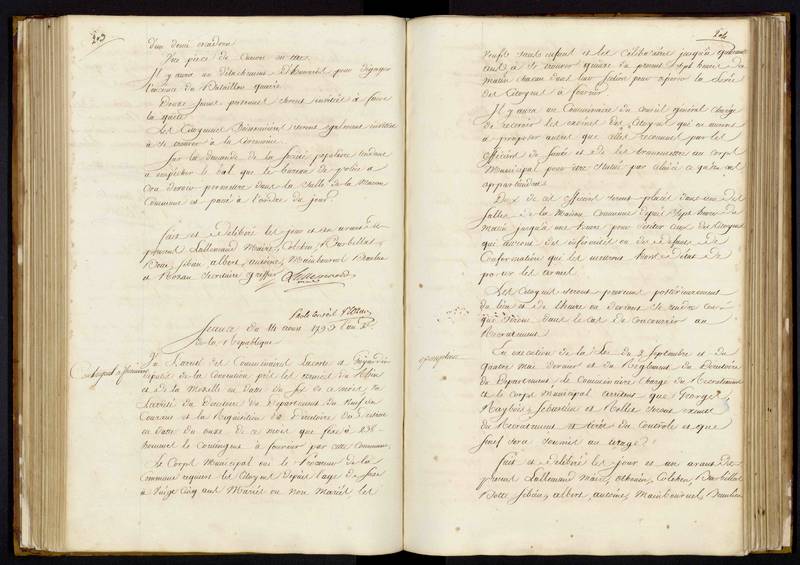 203
d'un demi escadron
Une piece de Canon
Il y aura un détachement d'honneur pour dégager
l'avenue du Bataillon quarré.
Douze jeunes personnes seront invitées à faire
la quête
Les Citoyennes seront également invitées
à se trouver à la Ceremonie.
Sur la demande de la Société populaire tendante
à empecher le bal que le bureau de police a
Cru devoir permettre dans la Salle de la Maison
Commune est passé à l'ordre du jour.
fait et délibéré les jour et an avant dit
présent Lallemand Maire, Colchen, Barbillat
Botte, Jeban, albert, antoine, Mainbournel
et Secrétaire greffier Lallemand
maire
Séance du 14 aout 1793 l'an 2e
de la République
Contingent à fournir
Vu l'arrêté des Commissaires Lacoste et Guyardin
députés de la Convention près les armées du Rhin
et de la Moselle en datte du six de ce mois
l'arrêté du Directoire du Département du Neuf du
Courant et la Requisition du Directoire du District
en datte du onze de ce mois que fixe à 238
hommes le contingent à fournir par cette Commune,
Le Corps Municipal oui le Procureur de la
Commune requiert les Citoyens depuis l'age de Seize
à Vingt Cinq ans Mariés ou non Mariés les
204
veufs sans enfant et les Célibataires jusqu'à quarante
ans, à se trouver du present sept heures du
matin chacun dans leur Section pour opérer la levée
des Citoyens à fournir
Il y aura un Commissaire du conseil général chargé
de recevoir les des Citoyens qui en auront
à proposer autres que celles reconnues par les
officiers de Santé et de les transmettre au corps
Municipal pour être statué par celui-ci ce qu'au cas
appartiendra.
Deux de ces officiers seront placés dans une des
salles de la Maison Commune depuis sept heures du
matin jusqu'à une heure pour visiter ceux des Citoyens
qui auront des infirmités ou des défauts de
Conformation qui les mettront hors d'état de
porter les armes.
Les Citoyens seront prévenus postérieurement
du lieu et de l'heure ou devront se rendre ceux
que seront dans le cas de concourir au
Recrutement.
exemption
En execution de la Loi du 2 Septembre et du
quatre Mai dernier et du Réglement du Directoire
du Département, le Commissaire Chargé du Recrutement
et le corps Municipal arrêtent que George
Sébastien et Nollet seront exemts
du Recrutement et tirés du Contrôle et que
Josef sera soumis au tirage.
fait et délibéré les jour et an avant dit
présent Lallemand maire, Colchen, Barbillat
Botte Jeban, albert, antoine, Mainbournel,